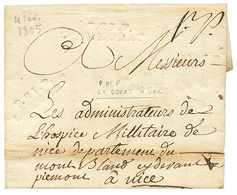 4 fév.
1805
A Messieurs
Les administrateurs de
L'hospice Millitaire de
nice département du
mont Bland cy devant
piemont
à nice